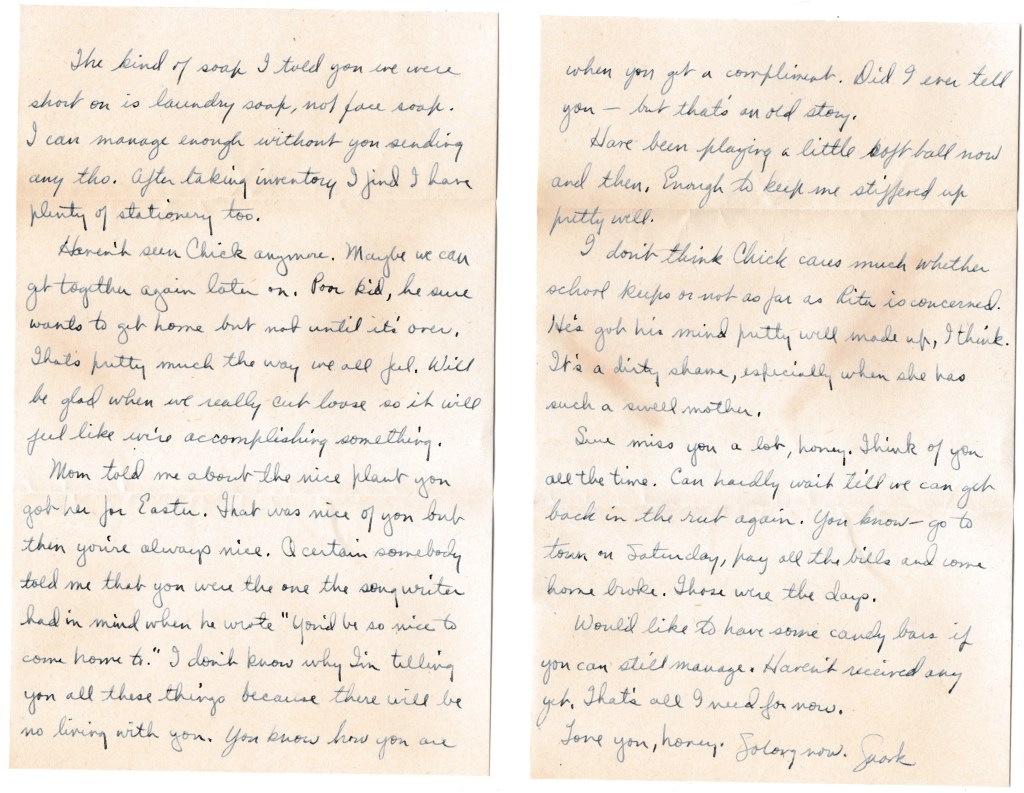 The kind of soap I told you we were
short on is laundry soap, not face soap.
I can manage enough without you sending
any tho. After taking inventory I find I have
plenty of stationery too.
Haven't seen Chick anymore. Maybe we can
get together again later on. Poor kid, he sure
wants to get home but not until it's over.
That's pretty much the way we all feel. Will
be glad when we really cut loose so it will
feel like we're accomplishing something.
Mom told me about the nice plant you
got her for Easter. That was nice of you but
then you're always nice. A certain somebody
told me that you were the one the song writer
had in mind when he wrote "You'd be so nice to
come home to." I don't know why I'm telling
you all these things because there will be
no living with you. You know how you are
when you get a compliment. Did I ever tell
you — but that's an old story.
Have been playing a little softball now
and then. Enough to keep me stiffered up
pretty well.
I don't think Chick cares much whether
school keeps or not as far as Rita is concerned.
He's got his mind pretty well made up, I think.
It's a dirty shame, especially when she has
such a swell mother.
Sure miss you a lot, honey. Think of you
all the time. Can hardly wait till we can get
back in the rut again. You know — go to
town on Saturday, pay all the bills and come
home broke. Those were the days.
Would like to have some candy bars if
you can still manage. Haven't received any
yet. That's all I need for now.
Love you, honey. So long now.